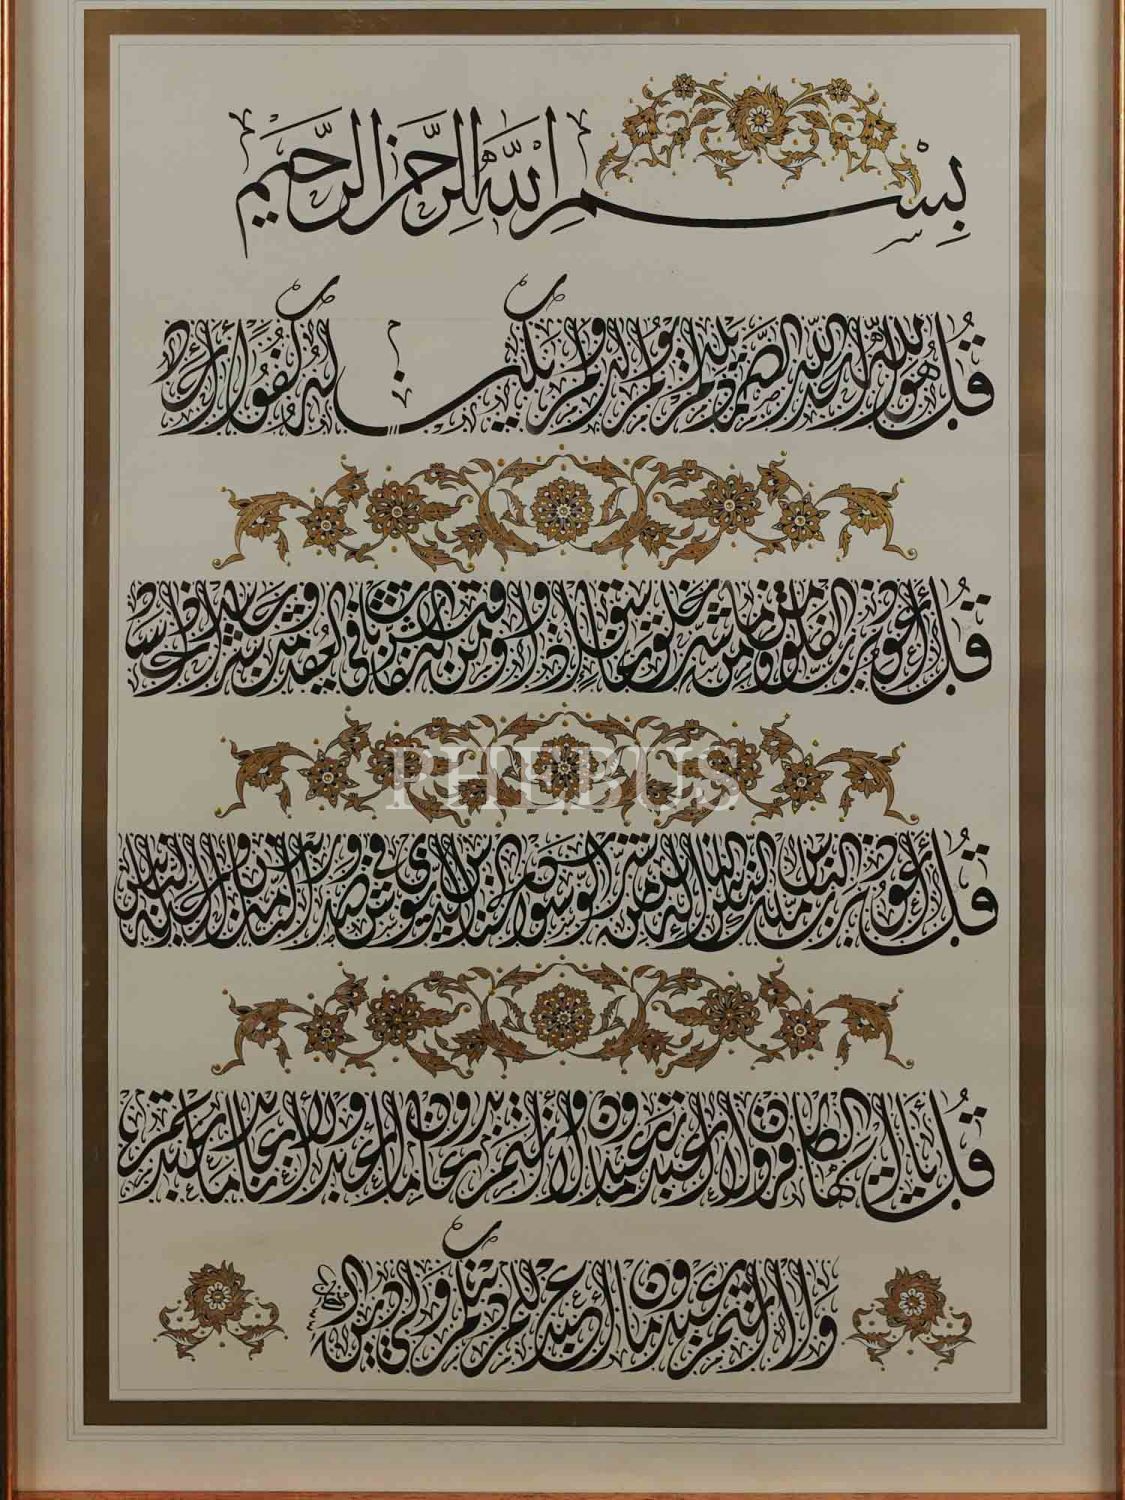 بِسْمِ اللهِ الرَّحْمٰنِ الرَّحِيمِ
قُلْ هُوَ اللهُ أَحَدٌ اللهُ الصَّمَدُ لَمْ يَلِدْ وَلَمْ يُولَدْ وَلَمْ يَكُنْ لَهُ كُفُوًا أَحَدٌ
قُلْ أَعُوذُ بِرَبِّ الْفَلَقِ مِنْ شَرِّ مَا خَلَقَ وَمِنْ شَرِّ غَاسِقٍ إِذَا وَقَبَ وَمِنْ شَرِّ النَّفَّاثَاتِ فِي الْعُقَدِ وَمِنْ شَرِّ حَاسِدٍ إِذَا حَسَدَ
PHEBUS
قُلْ أَعُوذُ بِرَبِّ النَّاسِ مَلِكِ النَّاسِ إِلٰهِ النَّاسِ مِنْ شَرِّ الْوَسْوَاسِ الْخَنَّاسِ الَّذِي يُوَسْوِسُ فِي صُدُورِ النَّاسِ مِنَ الْجِنَّةِ وَالنَّاسِ
قُلْ يَا أَيُّهَا الْكَافِرُونَ لَا أَعْبُدُ مَا تَعْبُدُونَ وَلَا أَنْتُمْ عَابِدُونَ مَا أَعْبُدُ وَلَا أَنَا عَابِدٌ مَا عَبَدْتُمْ
وَلَا أَنْتُمْ عَابِدُونَ مَا أَعْبُدُ لَكُمْ دِينُكُمْ وَلِيَ دِينِ